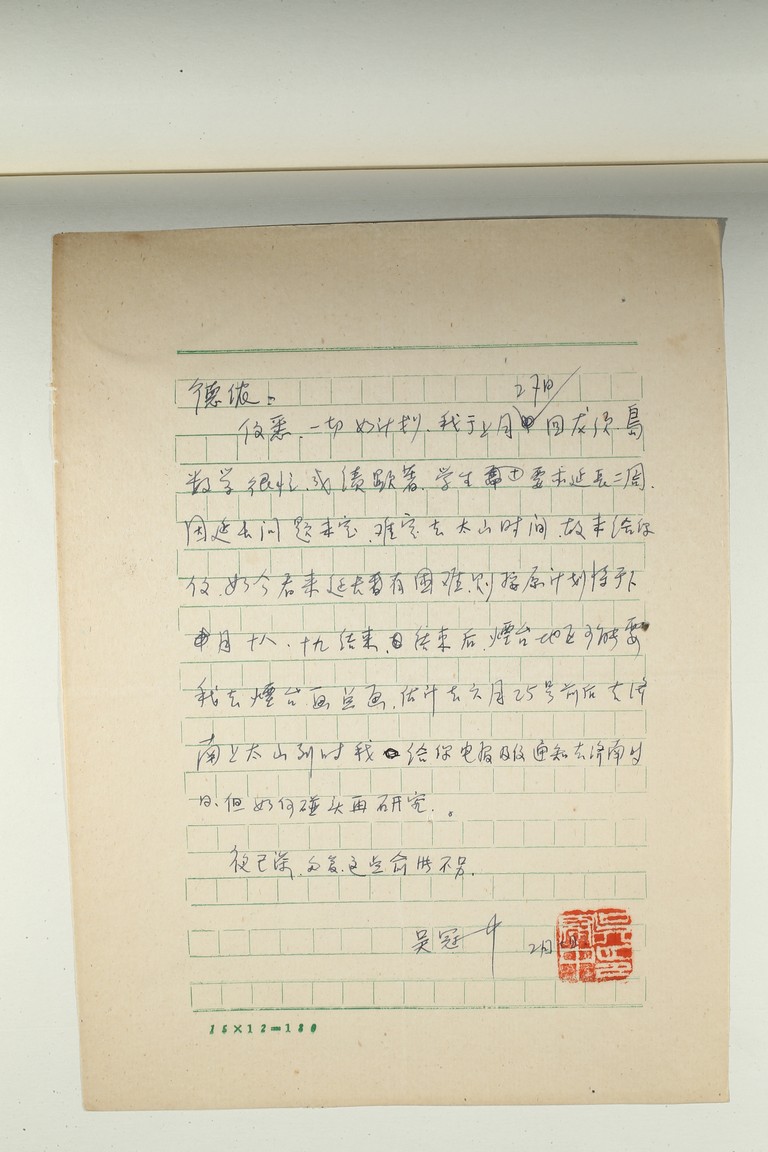 德侬：
27日
信悉，一切如计划，我于上月回龙须島
教学很忙，成绩顯著，学生要求延長二周，
因延長问题未定，难定去太山时间，故未给你
信，如今看来延長有困难，则按原计划将于下
月十八、十九结束，结束后，煙台地区可能要
我去煙台画些画，估计去六月25号前后去济
南上太山，到时我给你电报及信通知去济南时
日，但如何碰头再研究。
夜已深，匆复，这些俞牲不另。
吴冠中 2月
15×12=180